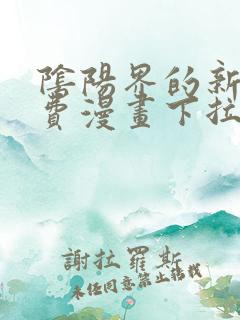 陰陽界的新
費漫畫下拉
謝拉羅斯
未經同意禁止轉載